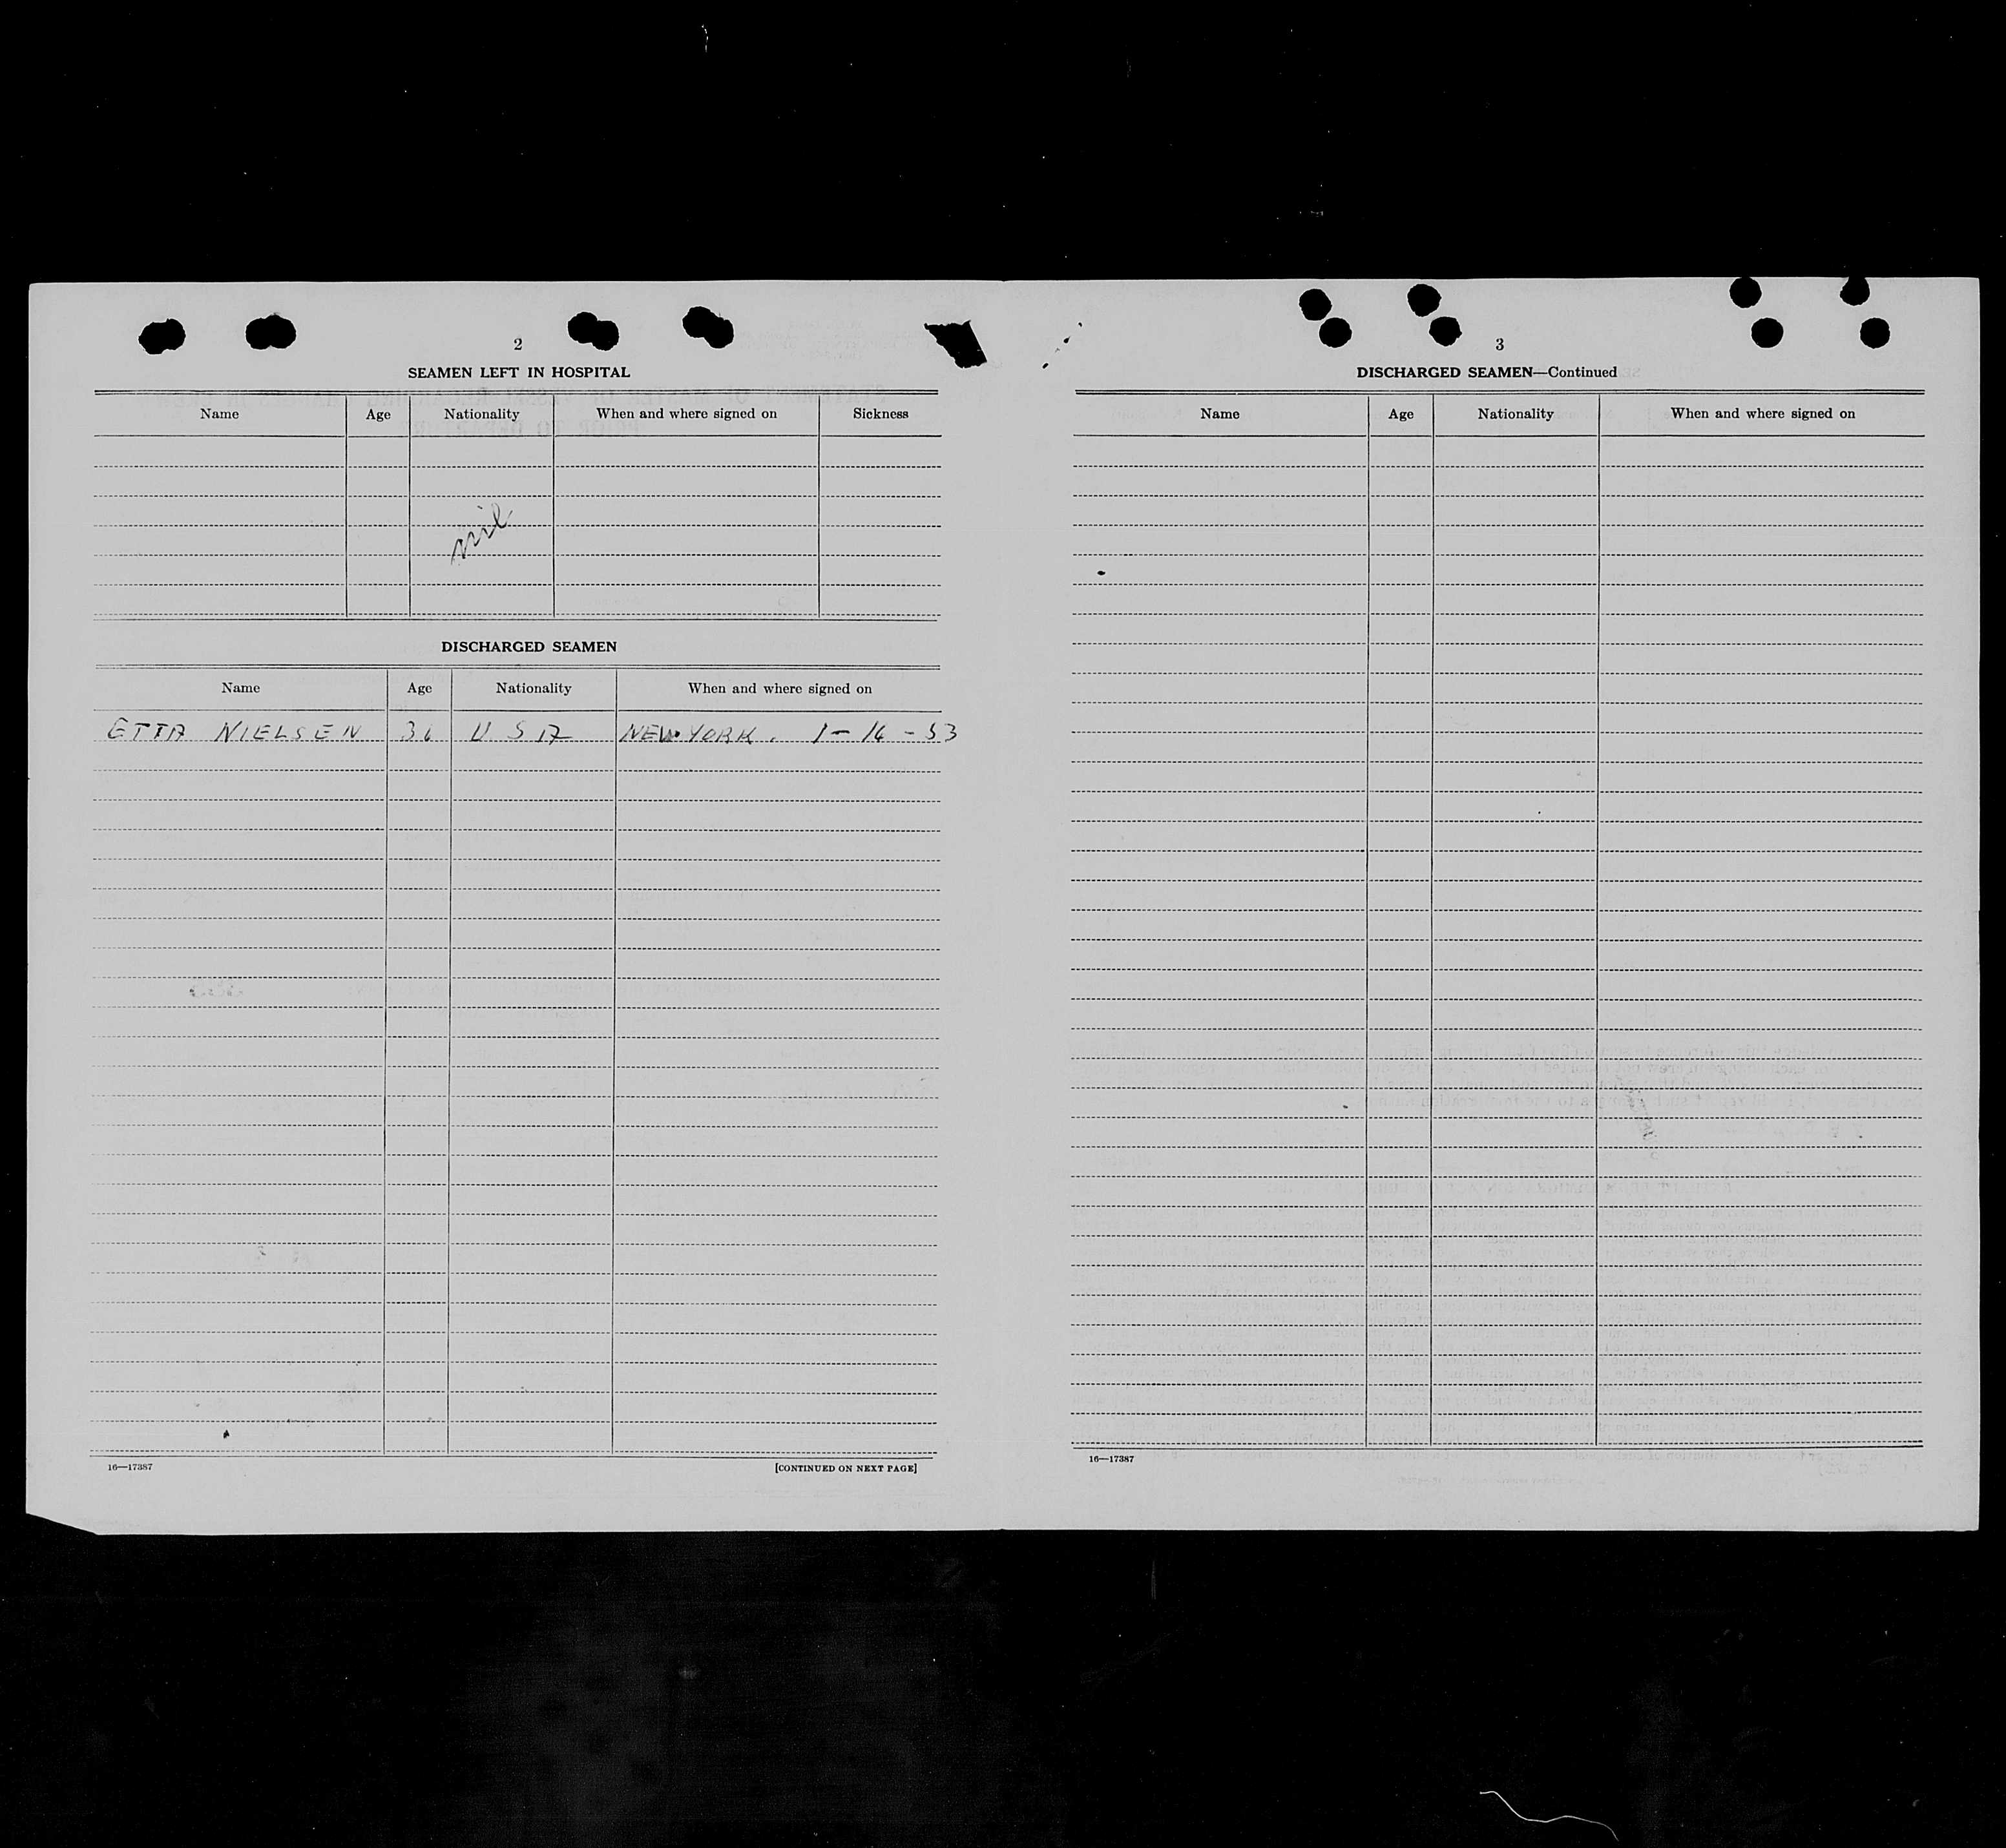 2
SEAMEN LEFT IN HOSPITAL
Name Age Nationality When and where signed on Sickness
nil
DISCHARGED SEAMEN
Name Age Nationality When and where signed on
ETTA NIELSEN 36 U S A NEW YORK. 1-16-53
16—17387 [CONTINUED ON NEXT PAGE]
3
DISCHARGED SEAMEN—Continued
Name Age Nationality When and where signed on
16—17387